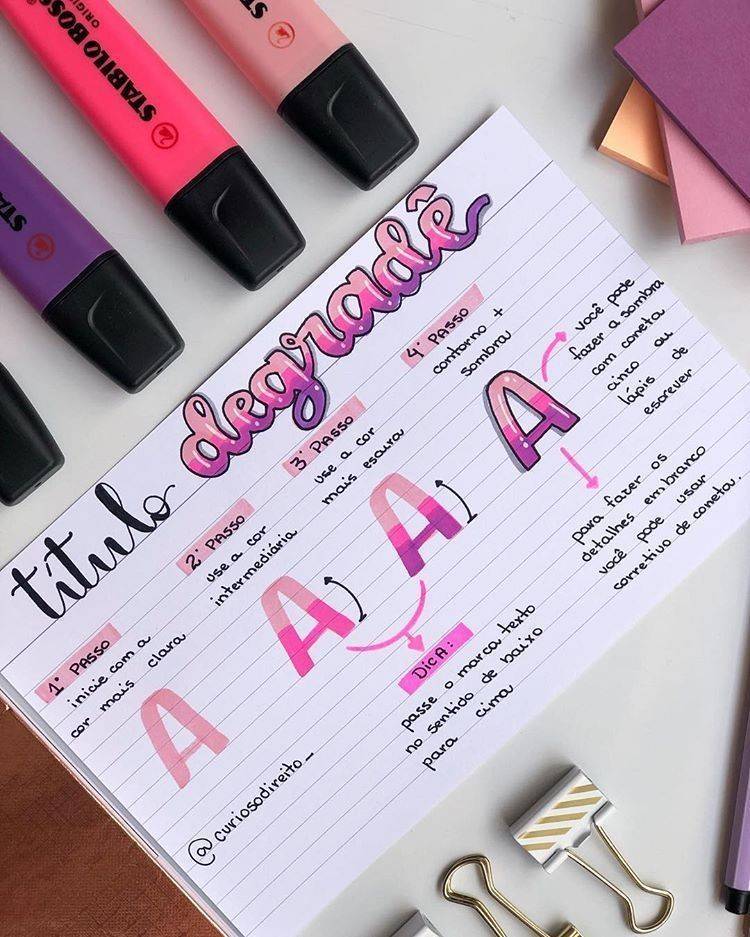 STABILO BOSS
ORIGINAL
STA
título degradê
1º PASSO
inicie com a
cor mais clara
A
2º PASSO
use a cor
intermediária
A
3º PASSO
use a cor
mais escura
A
4º PASSO
contorno +
sombra
A
você pode
fazer a sombra
com caneta
cinza ou
lápis de
escrever
para fazer os
detalhes em branco
você pode usar
corretivo de caneta.
DICA:
passe o marca texto
no sentido de baixo
para cima
@curiosodireito_